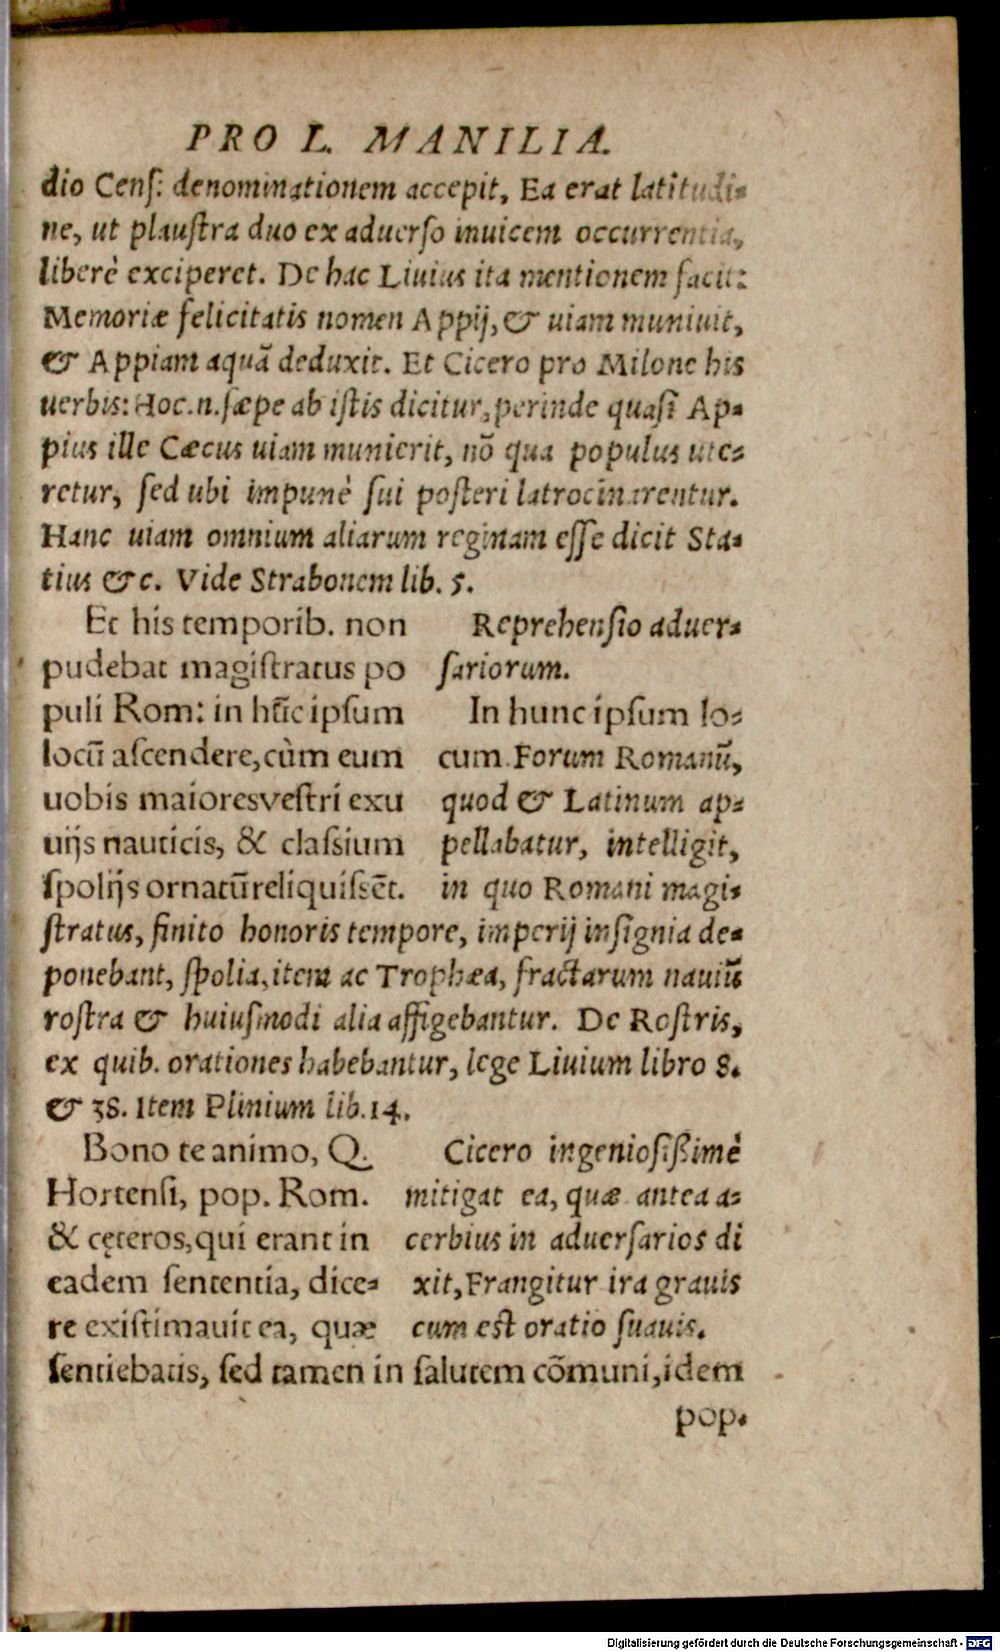 PRO L. MANILIA.
dio Cenſ: denominationem accepit, Ea erat latitudi=
ne, ut plauſtra duo ex aduerſo inuicem occurrentia,
liberè exciperet. De hac Liuius ita mentionem facit:
Memoriæ felicitatis nomen Appij, & uiam muniuit,
& Appiam aquā deduxit. Et Cicero pro Milone his
uerbis: Hoc.n.ſæpe ab iſtis dicitur, perinde quaſi Ap=
pius ille Cæcus uiam munierit, nō qua populus ute=
retur, ſed ubi impunè ſui poſteri latrocinarentur.
Hanc uiam omnium aliarum reginam eſſe dicit Sta=
tius &c. Vide Strabonem lib. 5.
Et his temporib. non
pudebat magiſtratus po
puli Rom: in hūc ipſum
locū aſcendere, cùm eum
uobis maioresveſtri exu
uijs nauticis, & claſsium
ſpolijs ornatū reliquiſsēt.
Reprehenſio aduer=
ſariorum.
In hunc ipſum lo=
cum Forum Romanū,
quod & Latinum ap=
pellabatur, intelligit,
in quo Romani magi=
ſtratus, finito honoris tempore, imperij inſignia de=
ponebant, ſpolia, item ac Trophæa, fractarum nauiū
roſtra & huiuſmodi alia affigebantur. De Roſtris,
ex quib. orationes habebantur, lege Liuium libro 8.
& 38. Item Plinium lib. 14.
Bono te animo, Q.
Hortenſi, pop. Rom.
& cęteros, qui erant in
eadem ſententia, dice=
re exiſtimauit ea, quæ
Cicero ingenioſiſsimè
mitigat ea, quæ antea a=
cerbius in aduerſarios di
xit, Frangitur ira grauis
cum eſt oratio ſuauis.
ſentiebatis, ſed tamen in ſalutem cōmuni, idem
pop.
Digitalisierung gefördert durch die Deutsche Forschungsgemeinschaft - DFG